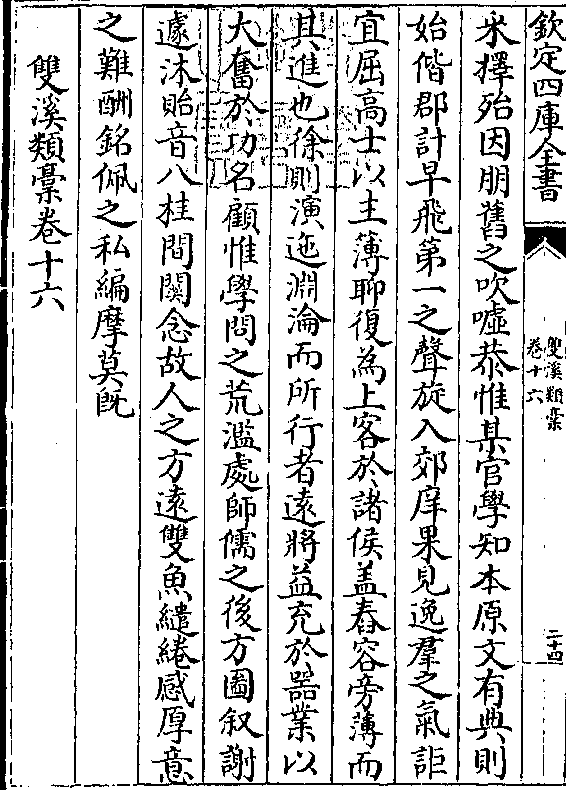 欽定四庫全書
雙溪類稾
卷十六
二十四
采擇殆因朋舊之吹噓恭惟某官學知本原文有典則
始偕郡計早飛第一之聲旋入郊庠果見逸羣之氣詎
宜屈高士以主薄聊復為上客於諸侯盖舂容旁薄而
其進也徐則演迤淵淪而所行者遠將益充於器業以
大奮於功名顧惟學問之荒濫處師儒之後方圖叙謝
遽沐貽音八桂間闗念故人之方遠雙魚繾綣感厚意
之難酬銘佩之私編摩莫既
雙溪類稾卷十六